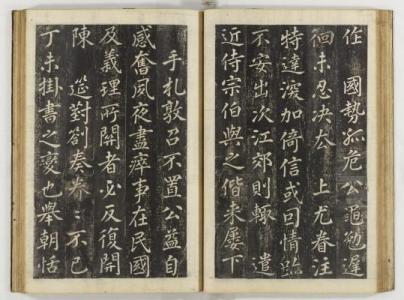 任　國勢孤危公黽勉遲
徊未忍決去　上尤眷注
特達深加倚信或回情跡
不安出次江郊則輒　遣
近侍宗伯與之偕来屢下
手札敦召不置公益自
感奮夙夜盡瘁事在民國
及義理所關者必反復開
陳　筵對劄奏眷〻不已
丁未掛書之變也舉朝恬